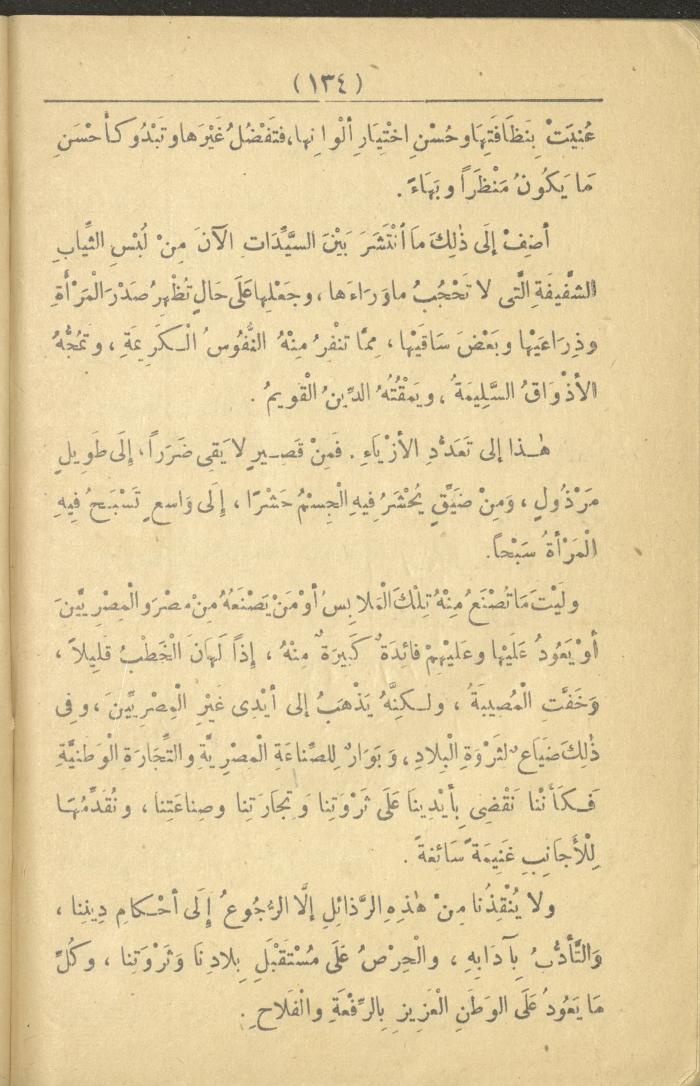 (١٣٤)
عُنِيَتْ بِنَظَافَتِهَا وحُسْنِ اخْتِيَارِ أَلْوَانِها، فتَفْضُلُ غَيْرَها وتَبْدُو كأَحْسَنِ
مَا يَكُونُ مَنْظَرَاً وبَهَاءً.
أضِفْ إلَى ذٰلِكَ مَا انْتَشَرَ بَيْنَ السَّيِّدَاتِ الآنَ مِنْ لُبْسِ الثِّيابِ
الشَّفِيفَةِ الَّتى لا تَحْجُبُ ماوَرَاءَها، وجَعْلِها عَلَى حَالٍ تُظْهِرُ صَدْرَ الْمَرْأَةِ
وذِرَاعَيْها وبَعْضَ سَاقَيْها، مِمَّا تنْفِرُ مِنْهُ النُّفُوسُ الْكَرِيمَةِ، وتَمُجُّهُ
الأذْوَاقُ السَّلِيمَةُ، ويَمْقُتُهُ الدِّينُ الْقَوِيمُ.
هٰذا إلى تَعَدُّدِ الأزْيَاءِ. فَمِنْ قَصِيرٍ لا يَقِى ضَرَراً، إلَى طَوِيلٍ
مَرْذُولٍ، وَمِنْ ضَيِّقٍ يُحْشَرُ فِيهِ الْجِسْمُ حَشْرًا، إلَى وَاسعٍ تَسْبَحُ فِيهِ
الْمَرْأةُ سَبْحاً.
ولَيْتَ مَا تُصْنَعُ مِنْهُ تِلْكَ الْمَلابِسُ أوْ مَنْ يَصْنَعُهُ مِنْ مصْرَ والْمِصْرِيَّينَ
أوْ يَعُودُ عَلَيْها وعَليْهِمْ فائدَةٌ كَبِيرَةٌ مِنْهُ، إذاً لَهَانَ الْخَطْبُ قَلِيلاً،
وَخَفَّتِ الْمُصِيبَةُ، ولكِنَّهُ يَذْهَبُ إلى أيْدِى غَيْرِ الْمِصْرِيِّينَ، وفِى
ذٰلِكَ ضَيَاعٌ لثَرْوَةِ الْبِلادِ، وَبَوَارٌ لِلصِّنَاعَةِ الْمصْرِيَّةِ والتِّجَارَةِ الْوَطَنيَّةِ
فَكَأَنَّنا نَقْضِى بِأَيْدِينَا عَلَى ثَرْوَتِنا وَتِجَارَتِنا وصِناعَتِنا، ونُقَدِّمُهَا
لِلْأَجَانِبِ غَنِيمَةً سَائغَةً.
ولا يُنْقِذُنا مِنْ هٰذِهِ الرَّذائِلِ إلَّا الرُّجُوعُ إلَى أحْكامِ دِينِنا،
وَالتَّأدُّبُ بِآدَابِهِ، والْحِرْصُ عَلَى مُسْتَقْبَلِ بِلادِنَا وَثَرْوَتِنا، وكُلِّ
مَا يَعُودُ عَلَى الوَطَنِ الْعَزِيزِ بِالرِّفْعَةِ والْفَلاحِ.